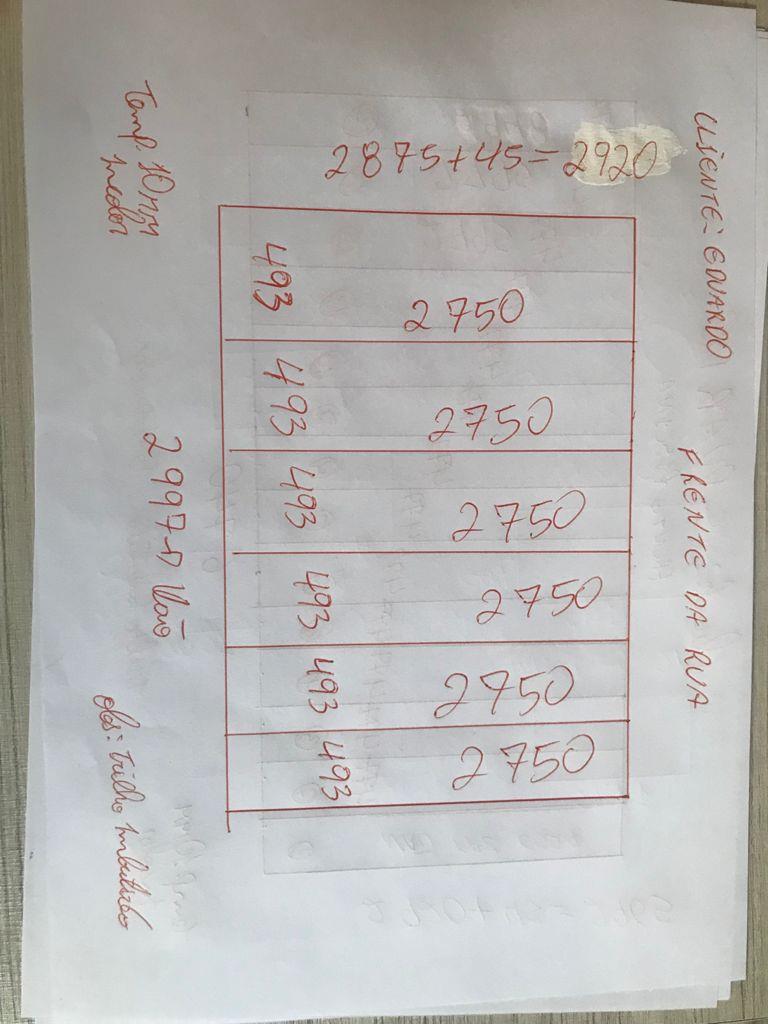 CLIENTE: EDUARDO FRENTE DA RUA
2875+45=2920
493 2750
493 2750
493 2750
493 2750
493 2750
493 2750
2997→ Vão
Temp. 10mm
Incolor
obs: trilho embutido